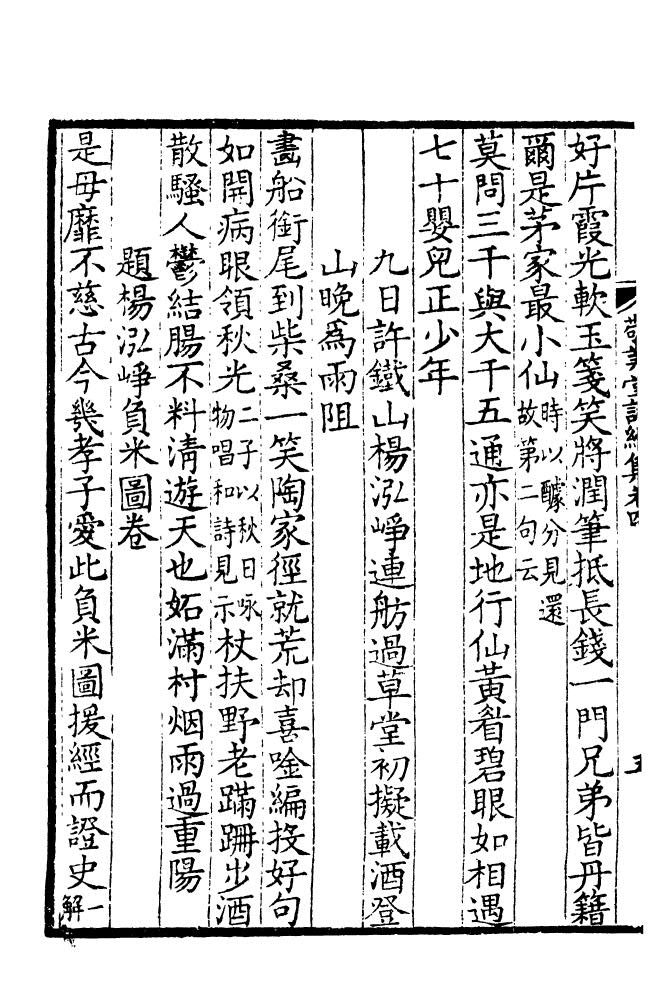 敬業堂詩續集卷四
五
好片霞光軟玉箋笑將潤筆抵長錢一門兄弟皆丹籍
爾是茅家最小仙時以醵分見還故第二句云
莫問三千與大千五通亦是地行仙黃眉碧眼如相遇
七十嬰兒正少年
九日許鐵山楊泓崢連舫過草堂初擬載酒登
山晚爲雨阻
畵船銜尾到柴桑一笑陶家徑就荒却喜唫編投好句
如開病眼領秋光二子以秋日咏物唱和詩見示杖扶野老蹣跚出酒
散騷人鬱結腸不料清遊天也妬滿村烟雨過重陽
題楊泓崢負米圖卷
是母靡不慈古今幾孝子愛此負米圖援經而證史一解